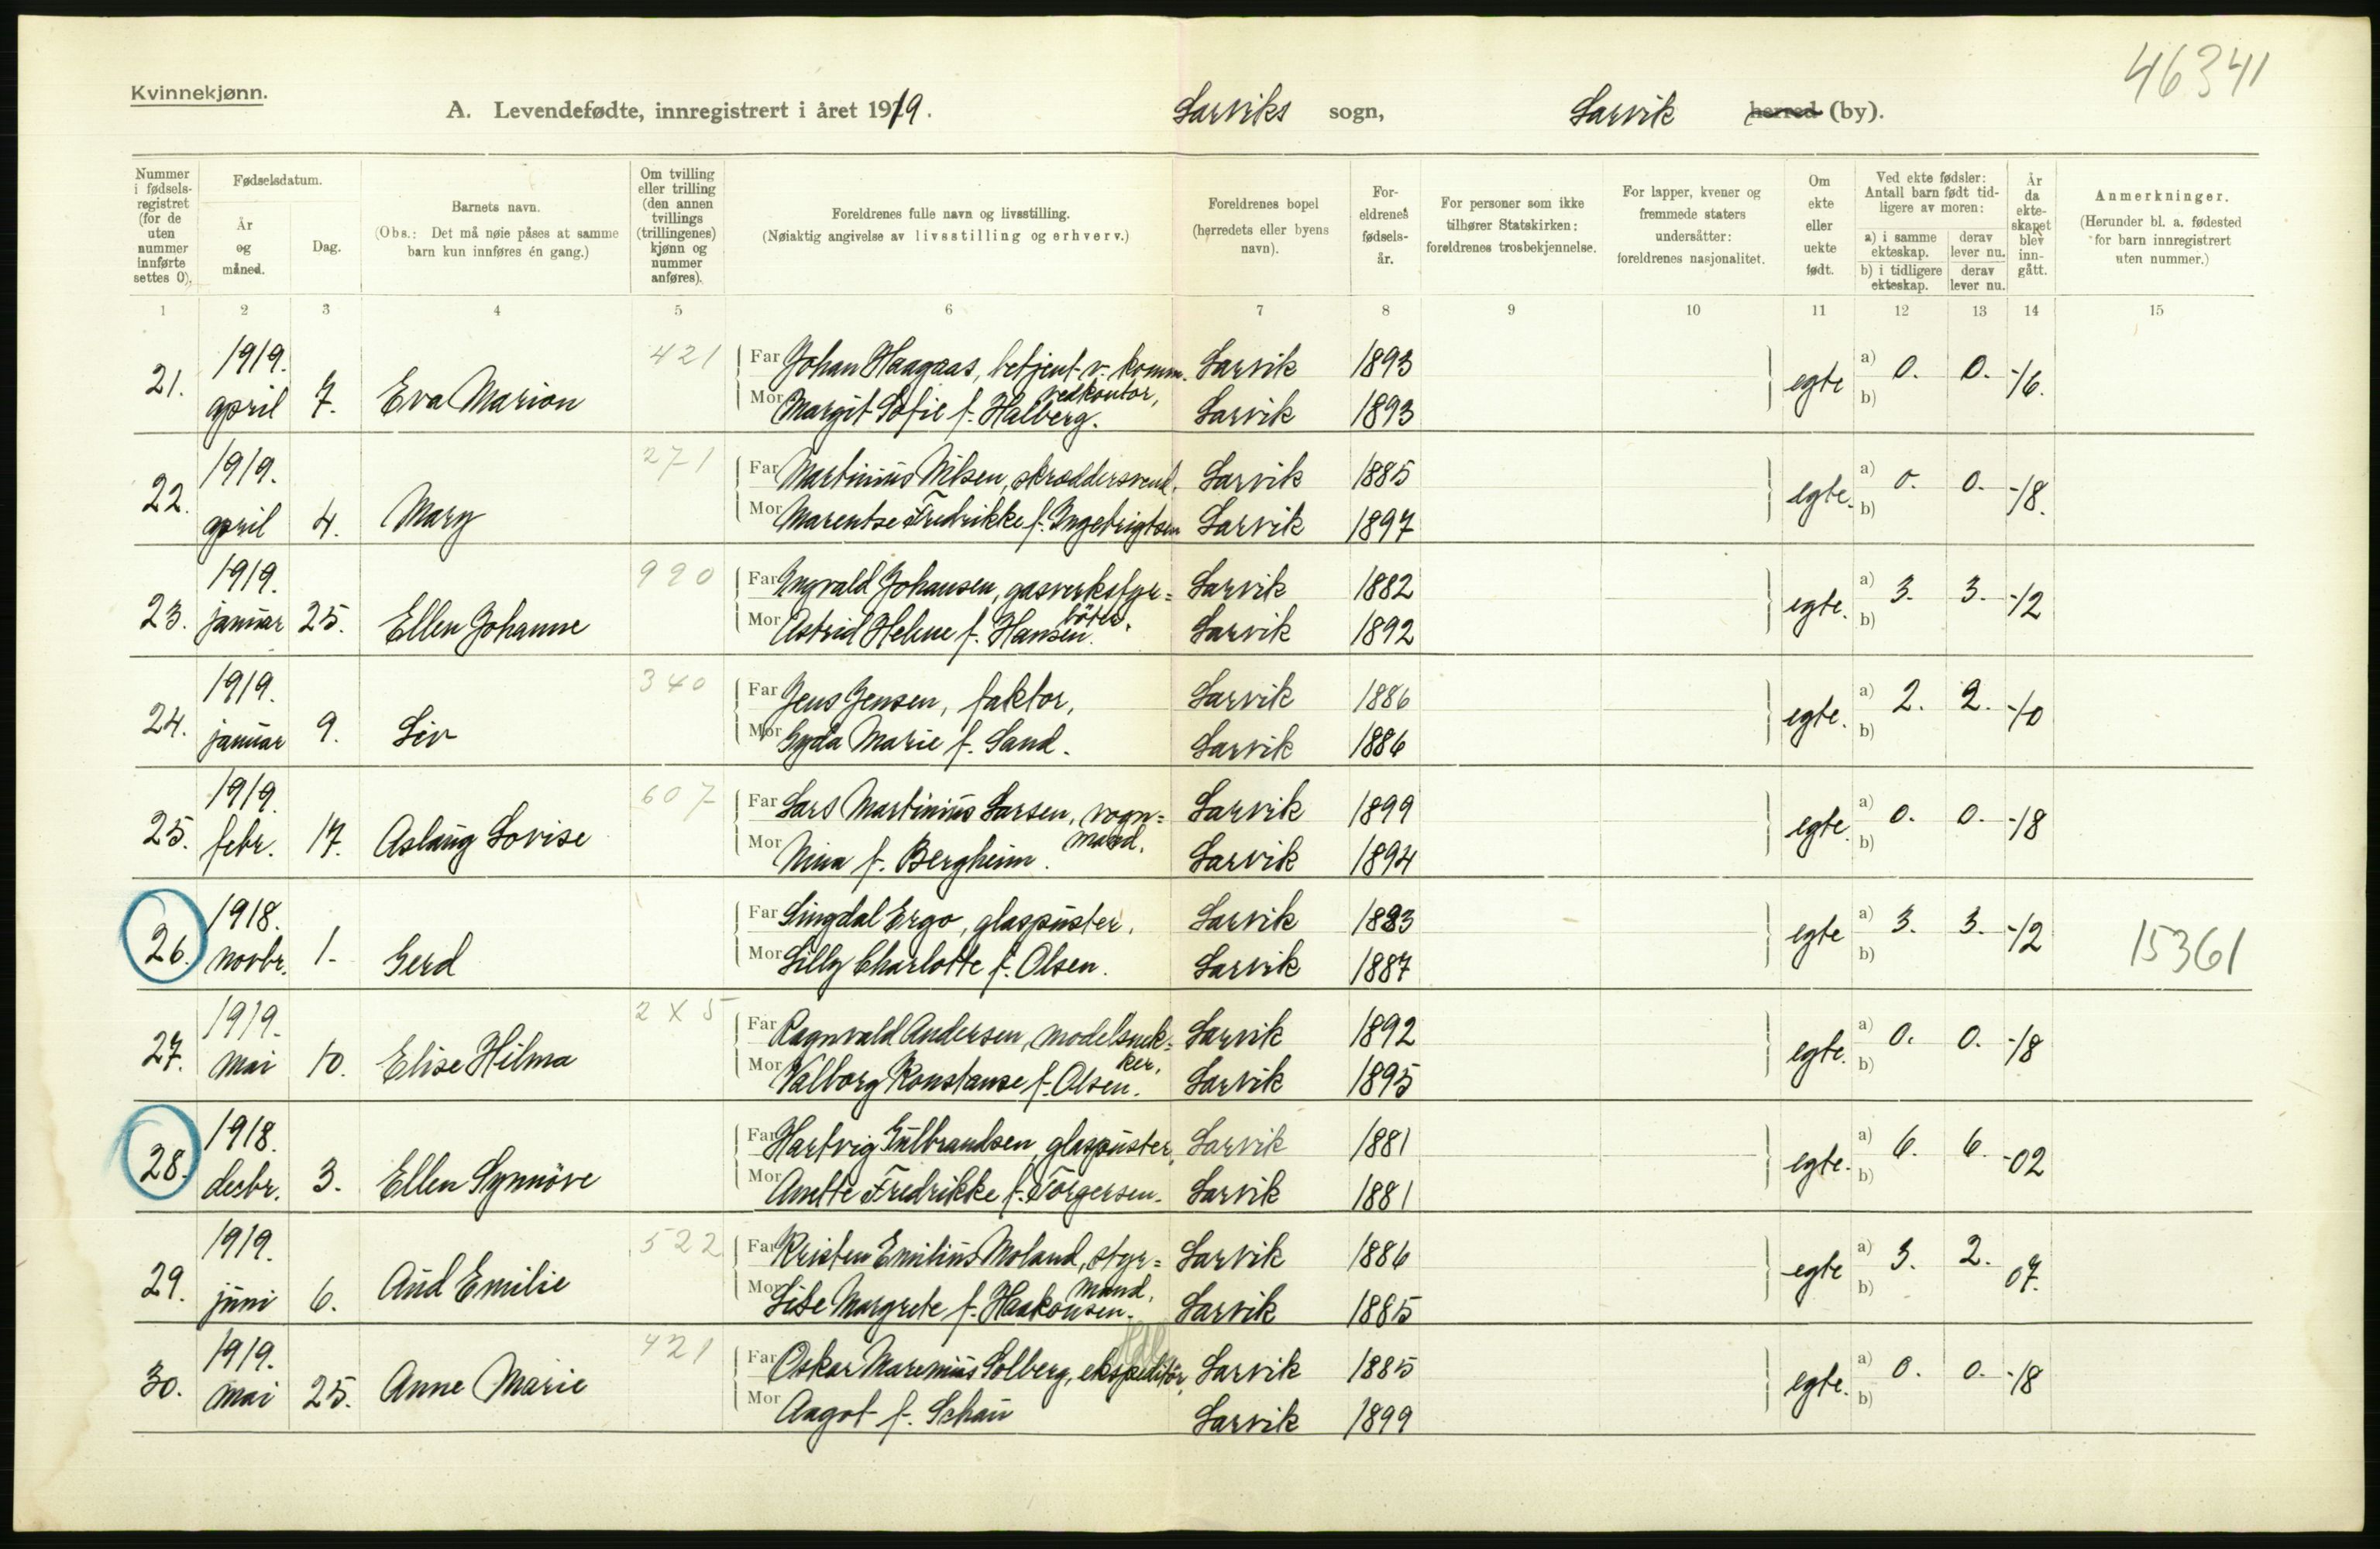 46341
Kvinnekjønn.
A. Levendefødte, innregistrert i året 1919. Larviks sogn, Larvik herred (by).
Nummer i fødsels-registret (for de uten nummer innførte settes 0).
Fødselsdatum.
År og måned.
Dag.
Barnets navn.
(Obs.: Det må nøie påses at samme barn kun innføres én gang.)
Om tvilling eller trilling (den annen tvillings (trillingenes) kjønn og nummer anføres).
Foreldrenes fulle navn og livsstilling.
(Nøiaktig angivelse av livsstilling og erhverv.)
Foreldrenes bopel (herredets eller byens navn).
For-eldrenes fødsels-år.
For personer som ikke tilhører Statskirken: foreldrenes trosbekjennelse.
For lapper, kvener og fremmede staters undersåtter: foreldrenes nasjonalitet.
Om ekte eller uekte født.
Ved ekte fødsler: Antall barn født tid-ligere av moren:
a) i samme ekteskap. derav lever nu.
b) i tidligere ekteskap. derav lever nu.
År da ekte-skapet blev inn-gått.
Anmerkninger.
(Herunder bl. a. fødested for barn innregistrert uten nummer.)
1 2 3 4 5 6 7 8 9 10 11 12 13 14 15
21. 1919. april 7. Eva Marion 421
Far Johan Haagaas, betjent v. komm. vedkontor, Larvik 1893 egte a) 0. 0. -16.
Mor Margit Sofie f. Halberg. Larvik 1893 b)
22. 1919. april 4. Mary 271
Far Martinius Nilsen, skræddersvend, Larvik 1885 egte. a) 0. 0. -18.
Mor Marentse Fredrikke f. Ingebrigtsen Larvik 1897 b)
23. 1919. januar 25. Ellen Johanne 990
Far Ingvald Johansen, gasverksfyr=böter. Larvik 1882 egte. a) 3. 3. -12
Mor Astrid Helene f. Hansen. Larvik 1892 b)
24. 1919. januar 9. Liv 340
Far Jens Jensen, faktor, Larvik 1886 egte. a) 2. 2. -10
Mor Gyda Marie f. Sand. Larvik 1886 b)
25. 1919. febr. 17. Aslaug Lovise 607
Far Lars Martinius Larsen, vogn=mand. Larvik 1899 egte. a) 0. 0. -18
Mor Nina f. Bergheim. Larvik 1894 b)
26. 1918. novbr. 1. Gerd
Far Lingdal Ergo, glaspuster, Larvik 1883 egte a) 3. 3. -12 15361
Mor Lilly Charlotte f. Olsen. Larvik 1887 b)
27. 1919. mai 10. Elise Hilma 2X5
Far Ragnvald Andersen, modelsnek=ker, Larvik 1892 egte. a) 0. 0. -18
Mor Valborg Konstanse f. Olsen. Larvik 1895 b)
28. 1918. decbr. 3. Ellen Synnöve
Far Hartvig Gulbrandsen, glaspuster, Larvik 1881 egte. a) 6. 6. -02
Mor Anette Fredrikke f. Torgersen. Larvik 1881 b)
29. 1919. juni 6. Aud Emilie 522
Far Kristen Emilius Moland, styr=mand, Larvik 1886 egte a) 3. 2. 07.
Mor Lise Margrete f. Haakonsen. Larvik 1885 b)
30. 1919. mai 25. Anne Marie 421
Far Oskar Marenius Solberg, ekspeditör, Larvik 1885 egte. a) 0. 0. -18
Mor Aagot f. Schau Larvik 1899 b)